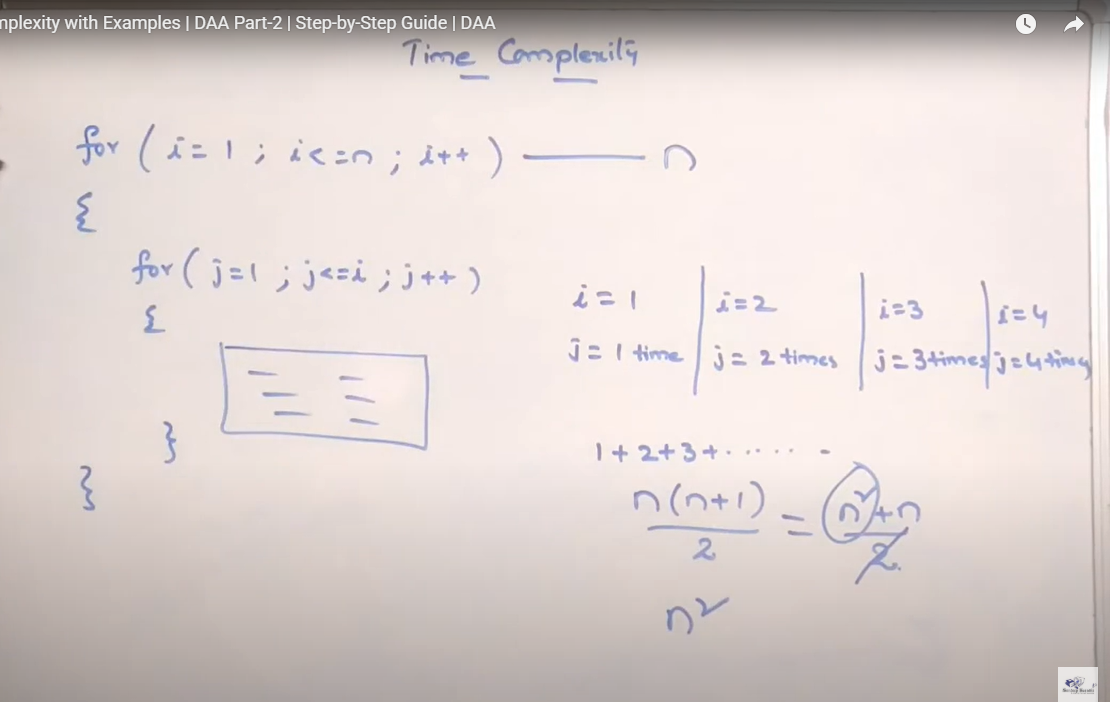 mplexity with Examples | DAA Part-2 | Step-by-Step Guide | DAA
Time Complexity
for ( i = 1 ; i <= n ; i++ ) ——— n
{
for ( j=1 ; j<=i ; j++ )
{
}
}
i = 1 | i=2 | i=3 | i=4
j = 1 time | j = 2 times | j = 3 times | j = 4 times
1 + 2 + 3 + . . . . . . -
n(n+1)/2 = n²+n/2
n²